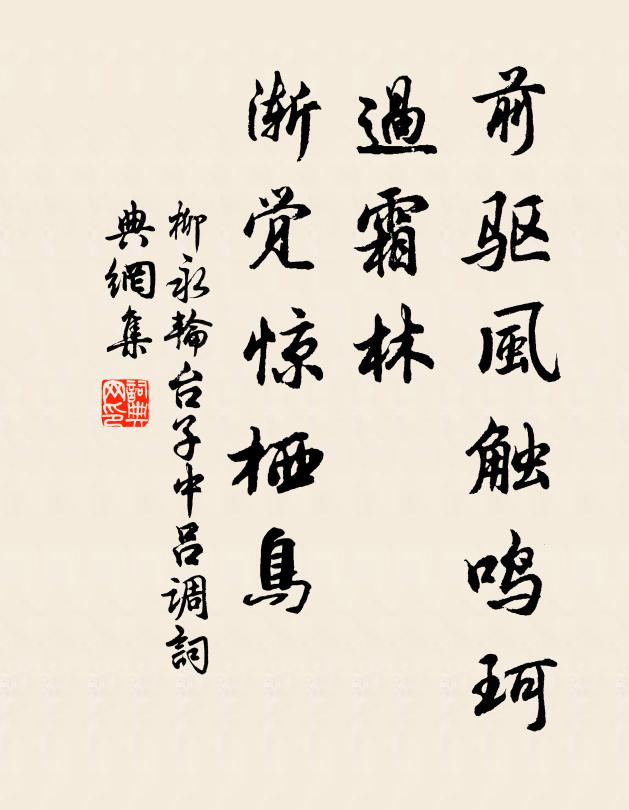 前驱風触鸣珂
過霜林
渐觉惊栖鳥
柳永輪台子中呂调詞
典網集
詞典網印